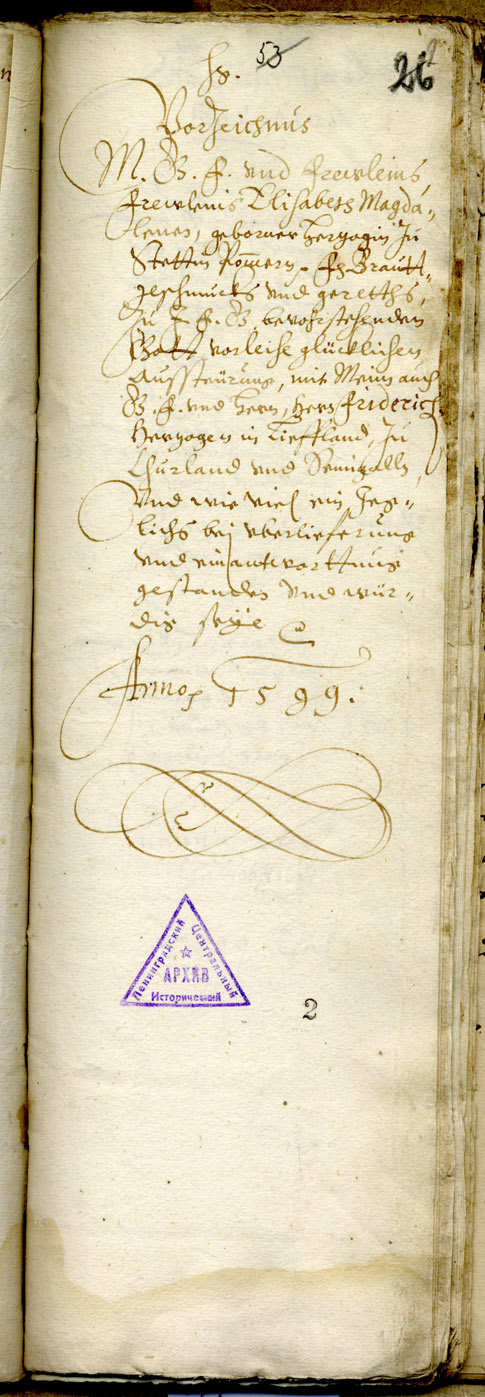 53
26
Vorzeichnus
M. G. F. und Frewleins,
Frewleins Elisabeth Magda-
lenen, geborner Herzogin zu
Stettin Pommern, Fh Brautt-
geschmucks und gerethes,
zu I. F. G. bevohrstehenden
Gott vorleihe glücklichen
Aussteürung, mit Meim auch
G. F. und Hern, Hern Friderich
Herzogen in Lieffland, zu
Churland und Semigalln
Und wie viel ein Jeg-
lichs bei uberlieferung
und einantworttung
gestanden und wür-
dig seye
Anno 1599.
Ленинградский Центральный
АРХИВ
Исторический
2